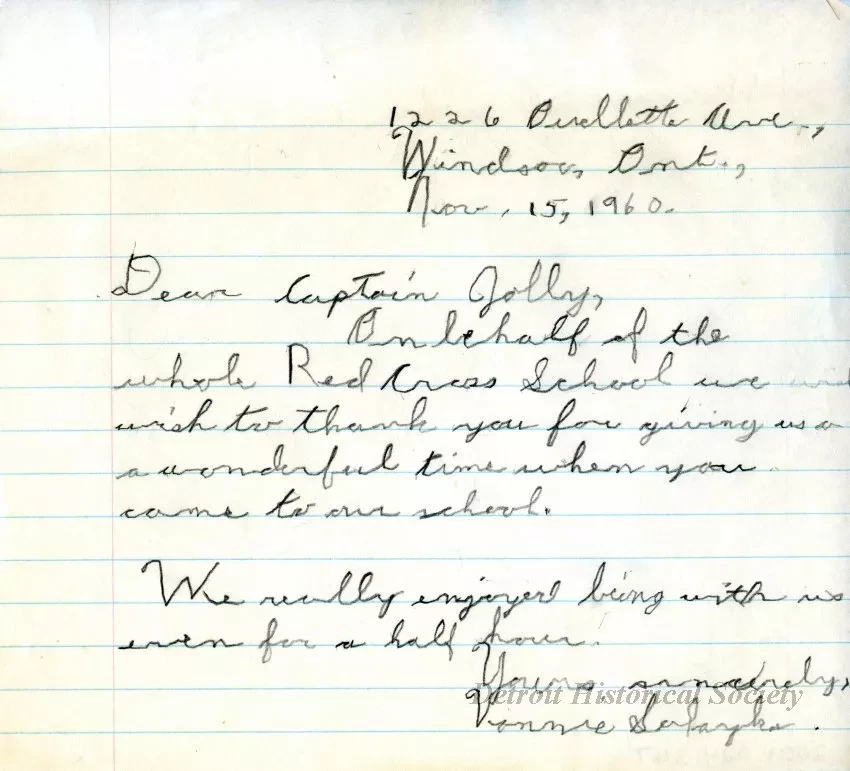 1226 Ouellette Ave.,
Windsor, Ont.,
Nov. 15, 1960.
Dear Captain Jolly,
On behalf of the
whole Red Cross School we
wish to thank you for giving us a
a wonderful time when you
came to our school.
We really enjoyed being with us
even for a half hour.
Yours sincerely,
Detroit Historical Society
Vonnie